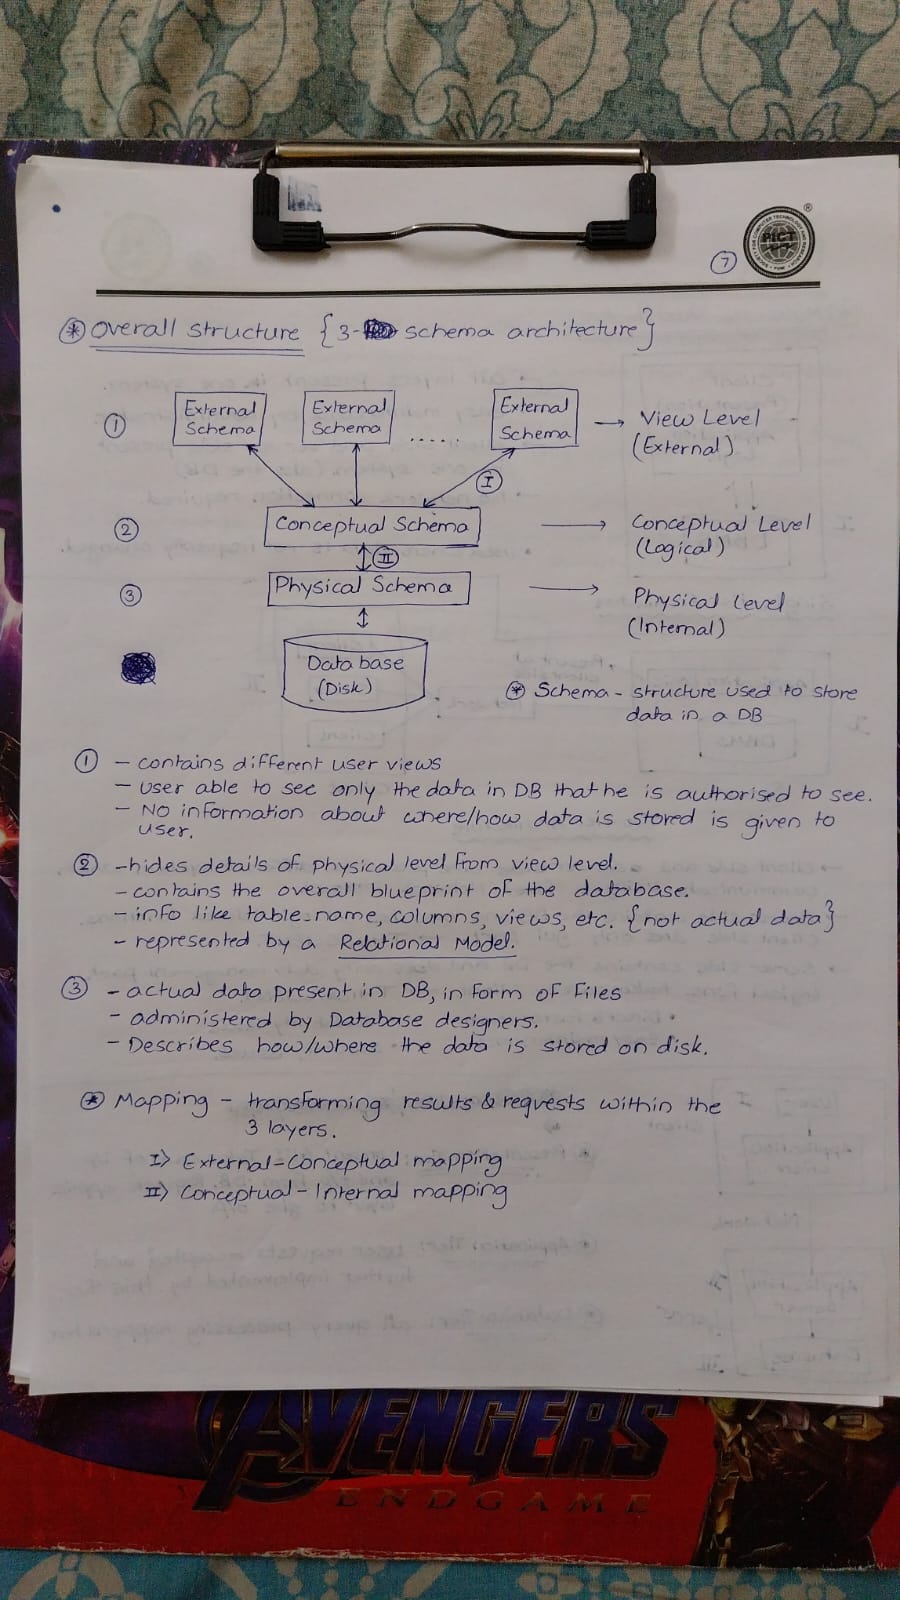 PICT
7
* overall structure {3- schema architecture}
1
External Schema
External Schema
......
External Schema
→ View Level
(External)
I
2
Conceptual Schema
→ Conceptual Level
(Logical)
II
3
Physical Schema
→ Physical Level
(Internal)
Database
(Disk)
* Schema - structure used to store
data in a DB
1 - contains different user views
- user able to see only the data in DB that he is authorised to see.
- No information about where/how data is stored is given to
user.
2 - hides details of physical level from view level.
- contains the overall blueprint of the database.
- info like table name, columns, views, etc. {not actual data}
- represented by a Relational Model.
3 - actual data present in DB, in form of files
- administered by Database designers.
- Describes how/where the data is stored on disk.
* Mapping - transforming results & requests within the
3 layers.
I> External-Conceptual mapping
II> Conceptual-Internal mapping
AVENGERS
ENDGAME